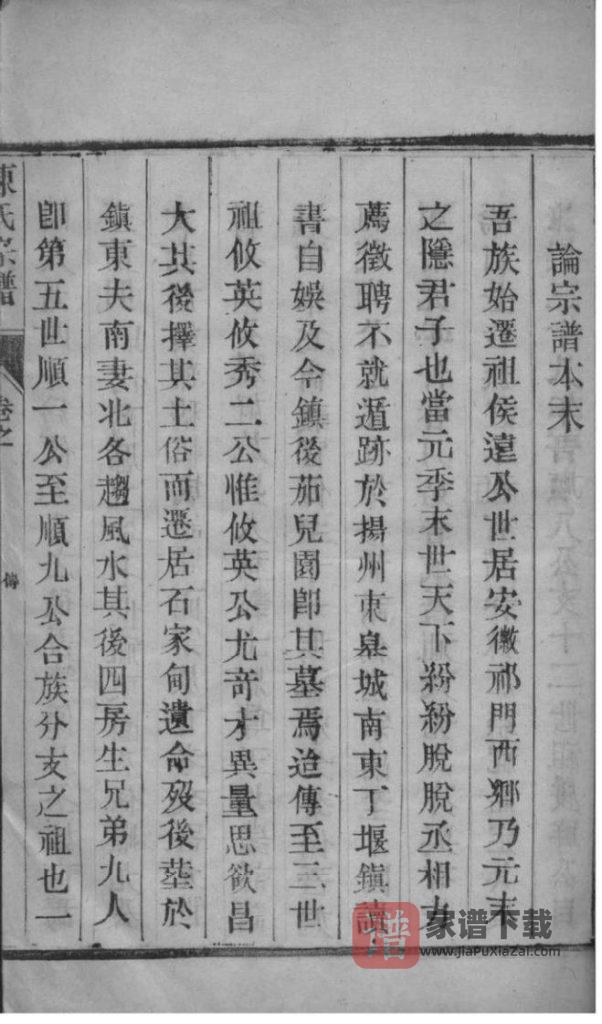 論宗譜本末
吾族始遷祖侯遠公世居安徽祁門西鄉乃元末
之隱君子也當元季末世天下紛紛脫脫丞相力
薦徵聘不就遁跡於揚州東臯城南東丁堰鎮讀
書自娛及今鎮後茄兒園卽其墓焉迨傳至三世
祖攸英攸秀二公惟攸英公尤奇才異量思欲昌
大其後擇其土俗而遷居石家甸遺命歿後塟於
鎮東夫南妻北各趨風水其後四房生兄弟九人
卽第五世順一公至順九公合族分支之祖也一
陳氏宗譜
卷之
傳
譜
家谱下载
www.jiaPuxiazai.com